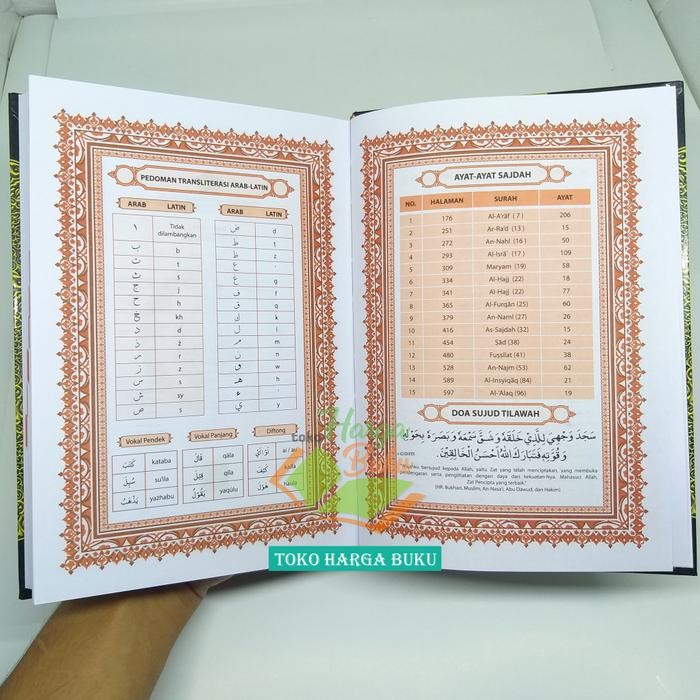 PEDOMAN TRANSLITERASI ARAB-LATIN
ARAB LATIN
١ Tidak dilambangkan
ب b
ت t
ج j
د d
ر r
ز z
س s
ش sy
ARAB LATIN
ض d
ط t
ظ z
ع
غ g
ف f
ق q
ك k
ل l
م m
ن n
و w
هـ h
ء
ي y
Vokal Pendek
كَتَبَ kataba
سُئِلَ su'ila
يَذْهَبُ yazhabu
Vokal Panjang
قَالَ qāla
قِيْلَ qīla
يَقُوْلُ yaqūlu
Diftong
كَيْفَ kaifa
حَوْلَ haula
AYAT-AYAT SAJDAH
NO. HALAMAN SURAH AYAT
1 176 Al-A'rāf (7) 206
2 251 Ar-Ra'd (13) 15
3 272 An-Nahl (16) 50
4 293 Al-Isrā' (17) 109
5 309 Maryam (19) 58
6 334 Al-Hajj (22) 18
7 341 Al-Hajj (22) 77
8 365 Al-Furqān (25) 60
9 379 An-Naml (27) 26
10 416 As-Sajdah (32) 15
11 454 Ṣād (38) 24
12 480 Fuṣṣilat (41) 38
13 528 An-Najm (53) 62
14 589 Al-Insyiqāq (84) 21
15 597 Al-'Alaq (96) 19
DOA SUJUD TILAWAH
سَجَدَ وَجْهِيَ لِلَّذِيْ خَلَقَهُ وَشَقَّ سَمْعَهُ وَبَصَرَهُ بِحَوْلِهِ
وَقُوَّتِهِ فَتَبَارَكَ اللّٰهُ أَحْسَنُ الْخَالِقِيْنَ
bersujud kepada Allah, yaitu Zat yang telah menciptakan, yang membuka
pendengaran serta penglihatan dengan daya dan kekuatan-Nya. Mahasuci Allah,
Zat Pencipta yang terbaik."
(HR. Bukhari, Muslim, An-Nasa'i, Abu Dawud, dan Hakim)
toko Harga Buku .com
TOKO HARGA BUKU